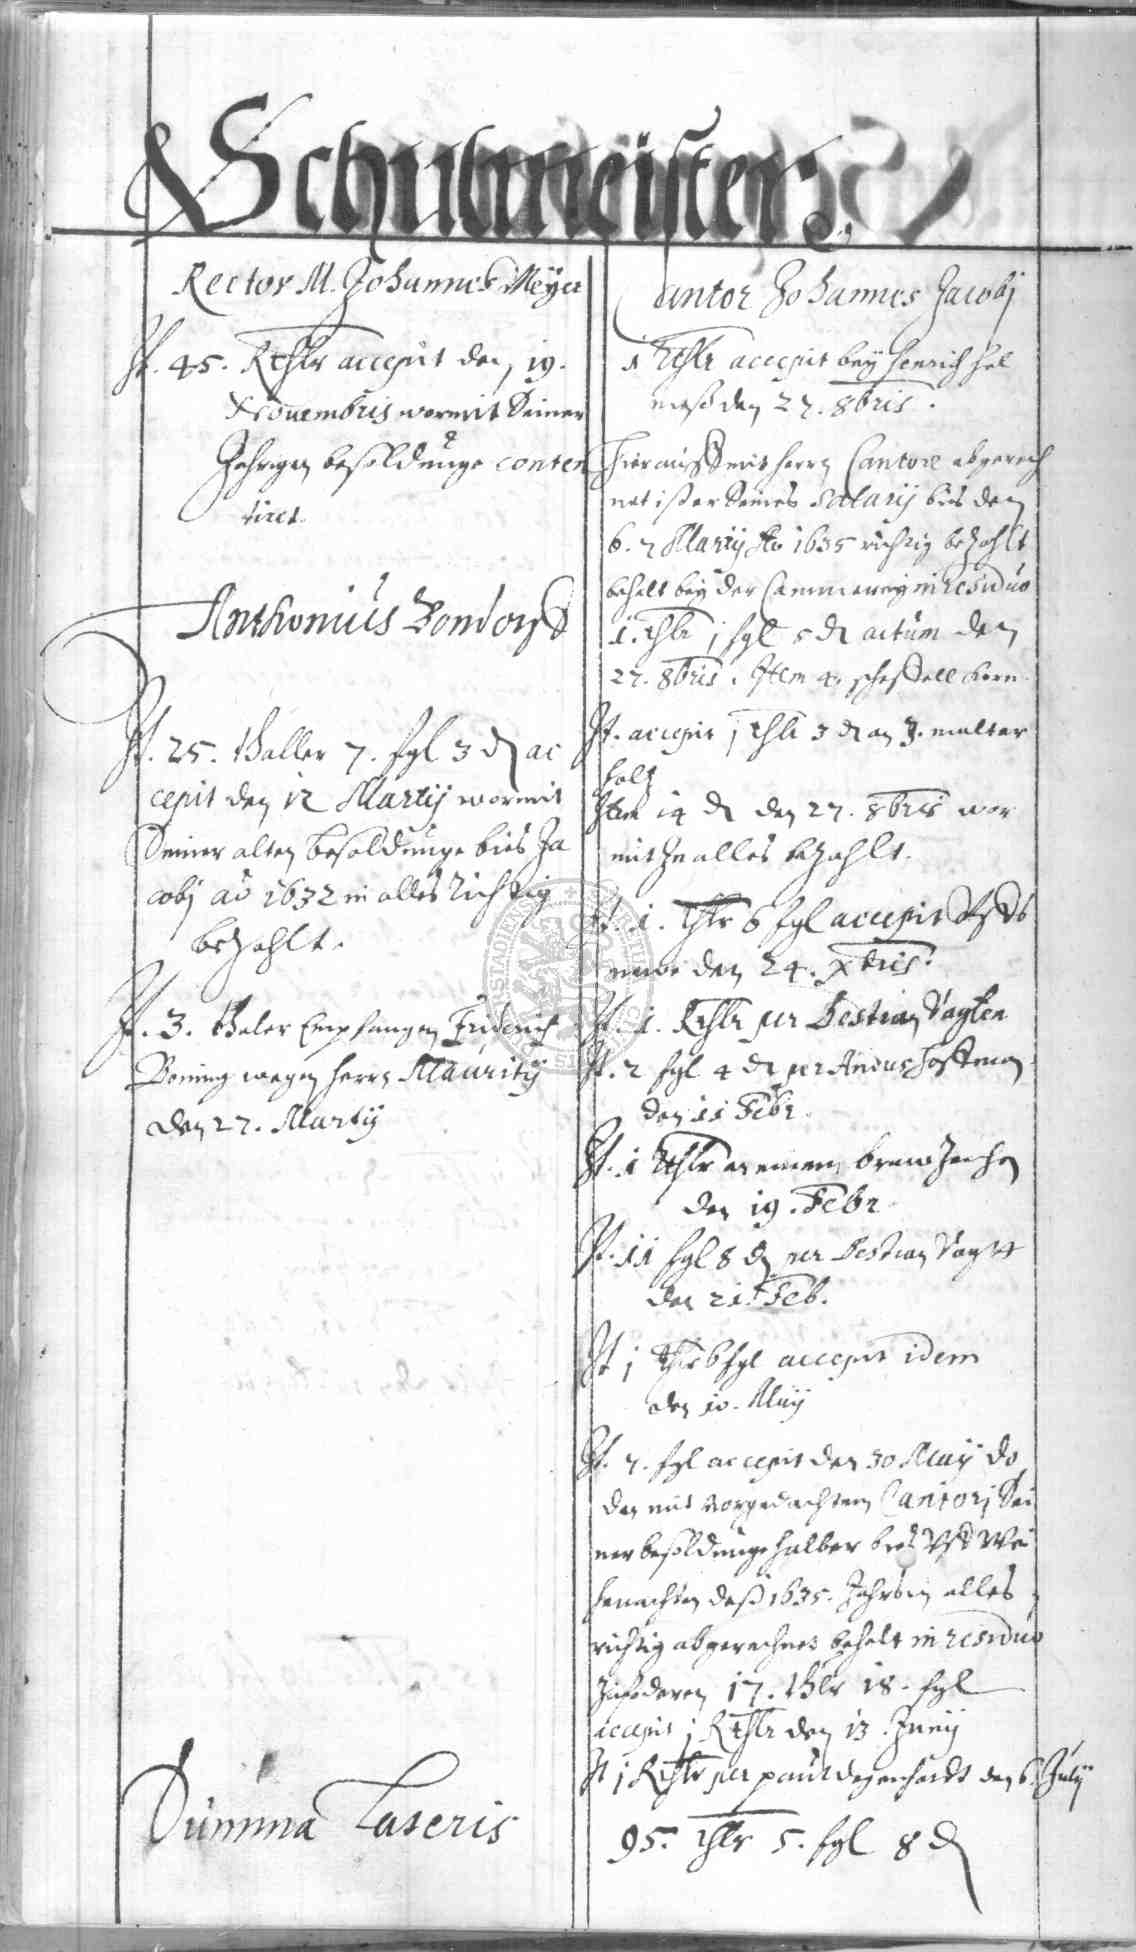 Schulmeister.
Rector M. Johannes Meyer
It. 45. Rthlr accepit den 19.
Novembris wormit Seiner
Jahrigen besoldunge conten
tiret.
Anthonius
It. 25. thaller 7. sgl 3 d ac
cepit den 12 Martij wormit
Seiner alten besoldunge bies Ja
cobj ao 1632 in alles richtig
bezahlt.
It. 3. thaler Empfangen Friderich
Bening wegen herrn Mauritij
den 27. Martij
Summa Lateris
Cantor Johannes Jacobj
1 Rthlr accepit bey henrich hel
meß den 27. 8bris.
hierauff mit herrn Cantore abgerech
net ist er Seines Salarij bies den
6. Martij Ao 1635 richtig bezahlt
behelt bey der Cammerey in residuo
1. thlr j sgl 5 d actum den
27. 8bris. Item 4 scheffell korn
It. accepit j thlr 3 d an 3. malter
holtz
Item 14 d den 27. 8bris wor
mit Jn alles bezahlt.
It. 1. thlr 6 sgl accepit
den 24. Xbris.
It. 1. Rthlr per Bestian Vagten
It. 2 sgl 4 d per Andreas hoffman
den 11 Febr.
It. 1 Rthlr an einem braw
den 19. Febr.
It. 11 sgl 8 d per Bestian Vagtt
den 21. Feb.
It j thlr 6 sgl accepit idem
den 10. Maij
It. 7. sgl accepit den 30 Maij do
den mit vorgedachtem Cantorj Sei
ner besoldunge halber bies Vff Wei
henachten deß 1635. Jahrs in alles
richtig abgerechnet behelt in residuo
Zufoderen 17. thlr 18. sgl
accepit j Rthlr den 13. Junij
It j Rthlr per paul degenhardt den 6. July
95. thlr 5. sgl 8 d